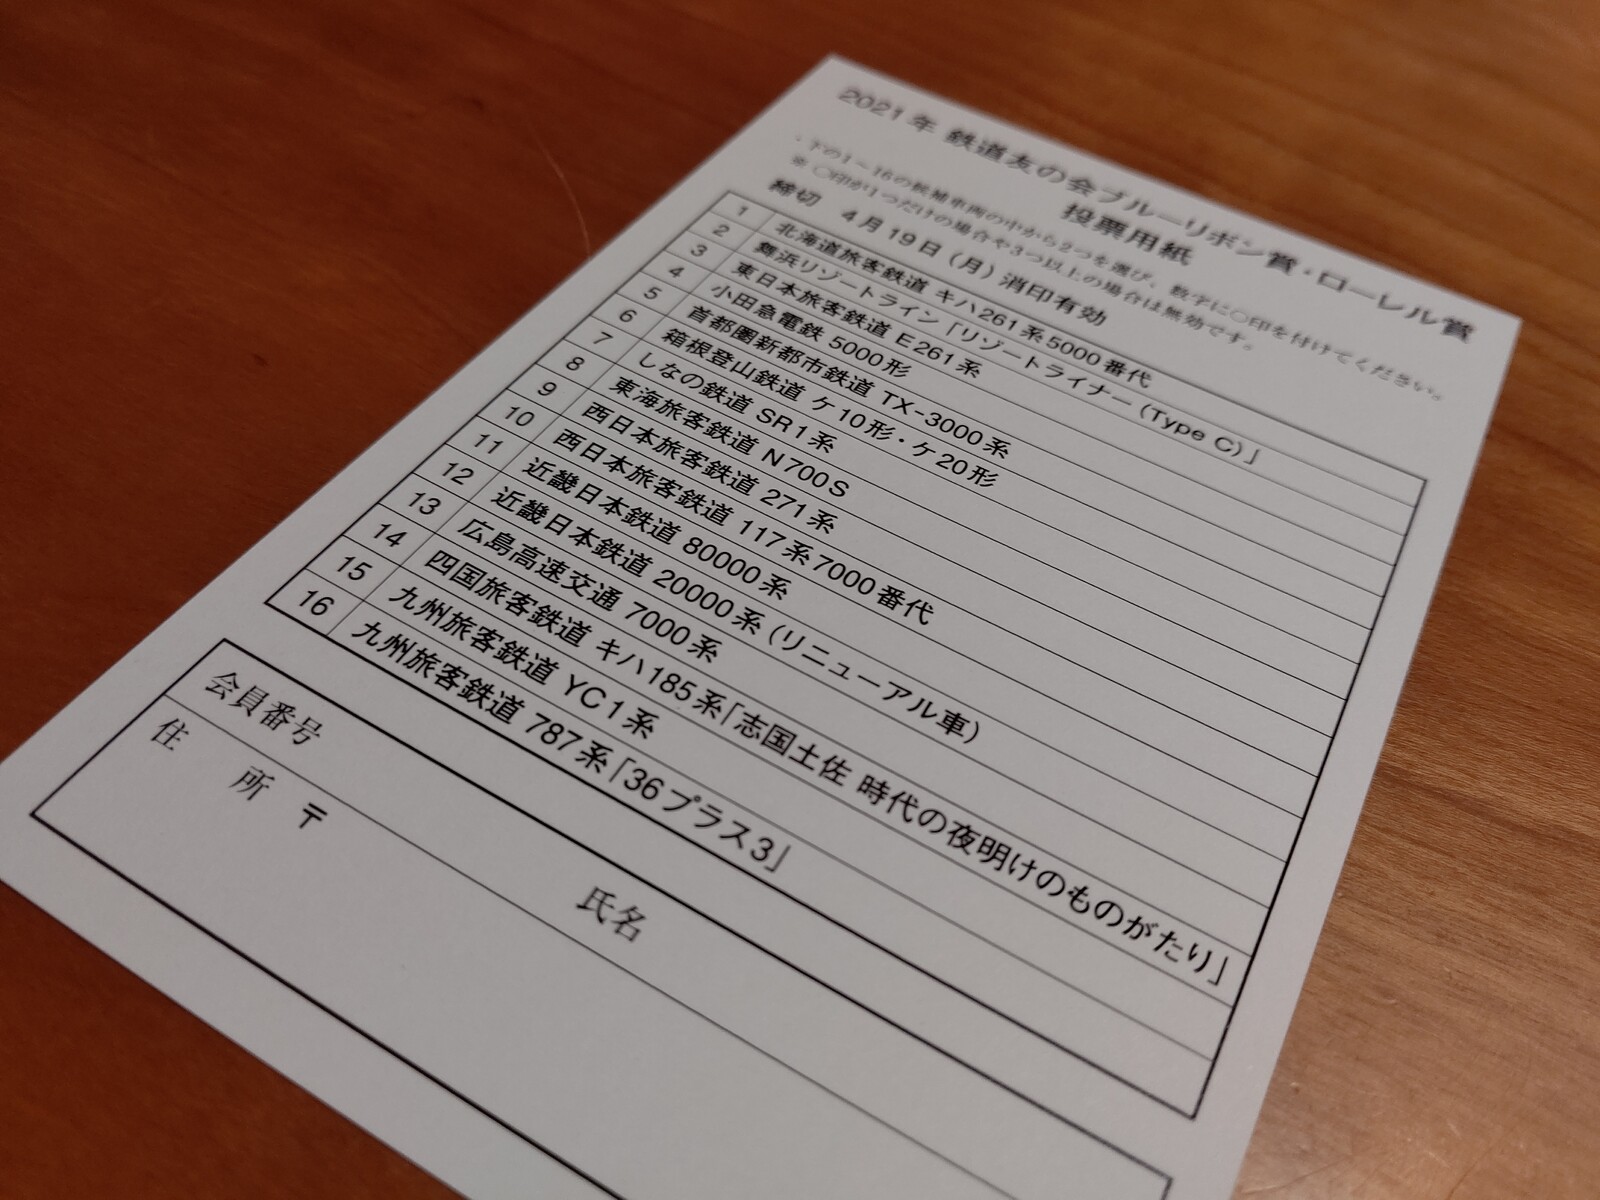 2021年 鉄道友の会ブルーリボン賞・ローレル賞
投票用紙
・下の1～16の候補車両の中から2つを選び、数字に〇印を付けてください。
※ 〇印が1つだけの場合や3つ以上の場合は無効です。
締切 4月19日(月)消印有効
1 北海道旅客鉄道 キハ261系5000番代
2 舞浜リゾートライン「リゾートライナー(Type C)」
3 東日本旅客鉄道 E261系
4 小田急電鉄 5000形
5 首都圏新都市鉄道 TX-3000系
6 箱根登山鉄道 ケ10形・ケ20形
7 しなの鉄道 SR1系
8 東海旅客鉄道 N700S
9 西日本旅客鉄道 271系
10 西日本旅客鉄道 117系7000番代
11 近畿日本鉄道 80000系
12 近畿日本鉄道 20000系(リニューアル車)
13 広島高速交通 7000系
14 四国旅客鉄道 キハ185系「志国土佐 時代の夜明けのものがたり」
15 九州旅客鉄道 YC1系
16 九州旅客鉄道 787系「36プラス3」
会員番号 氏名
住所 〒